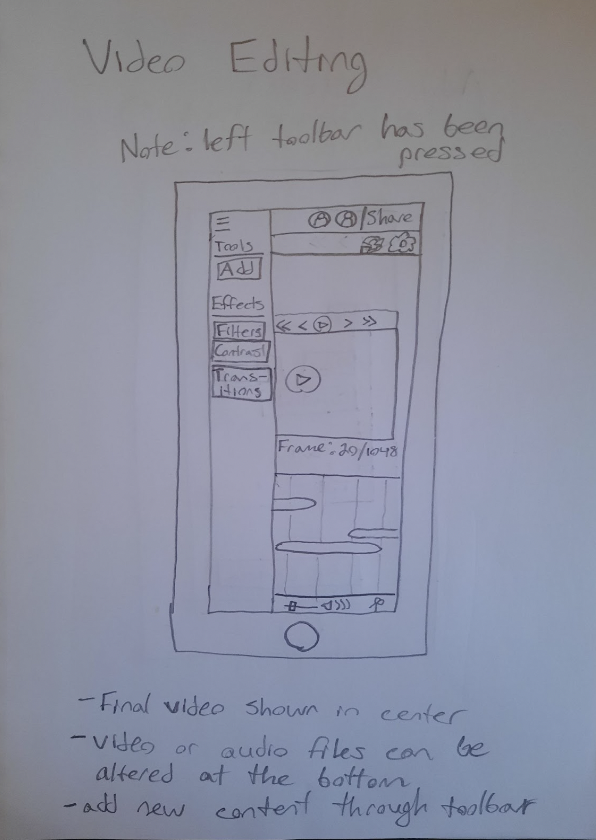 Video Editing
Note: left toolbar has been
pressed
Share
Tools
Add
Effects
Filters
Contrast
Trans-
itions
Frame: 20/1048
- Final video shown in center
- video or audio files can be
altered at the bottom
- add new content through toolbar